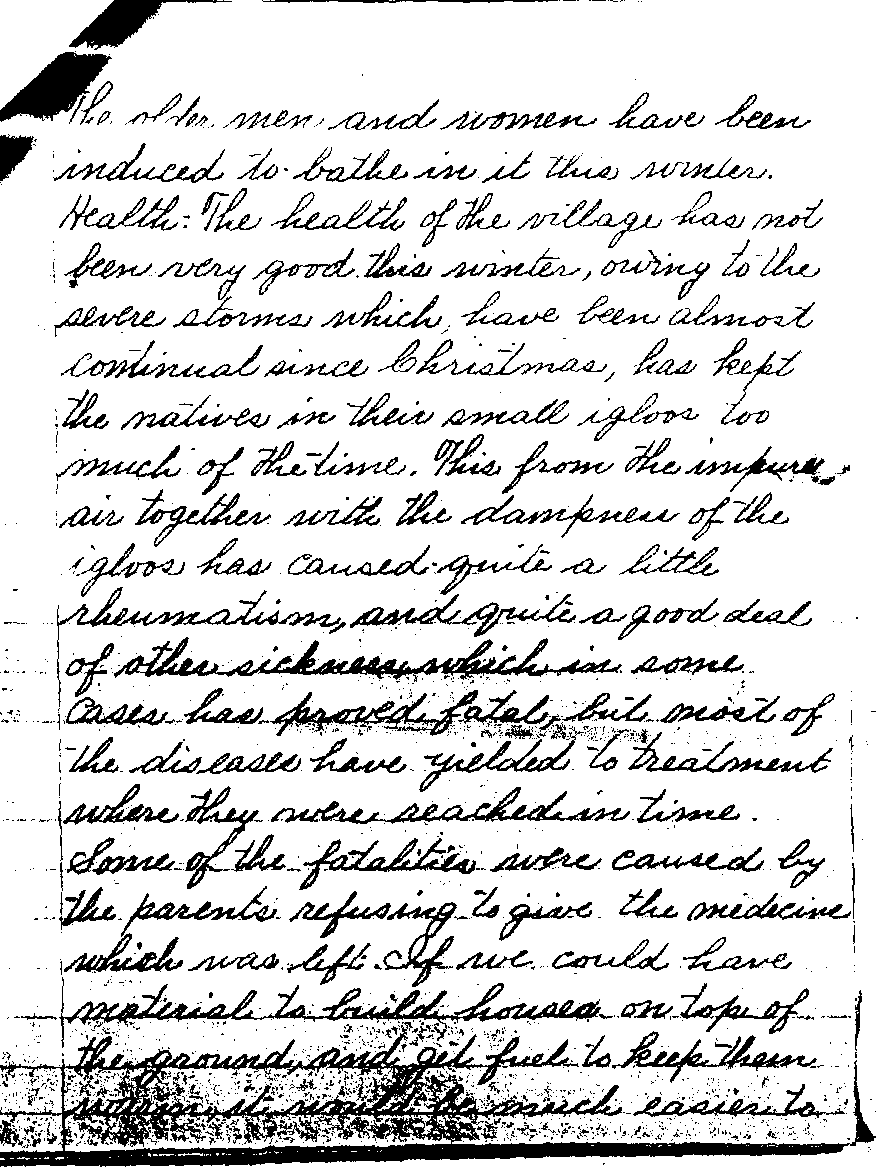 The older men and women have been
induced to bathe in it this winter.
Health: The health of the village has not
been very good this winter, owing to the
severe storms which, have been almost
continual since Christmas, has kept
the natives in their small igloos too
much of the time. This from the impure
air together with the dampness of the
igloos has caused quite a little
rheumatism, and quite a good deal
of other sickness, which in some
cases has proved fatal, but most of
the diseases have yielded to treatment
where they were reached in time.
Some of the fatalities were caused by
the parents refusing to give the medicine
which was left. If we could have
material to build houses on top of
the ground, and get fuel to keep them
warm, it would be much easier to